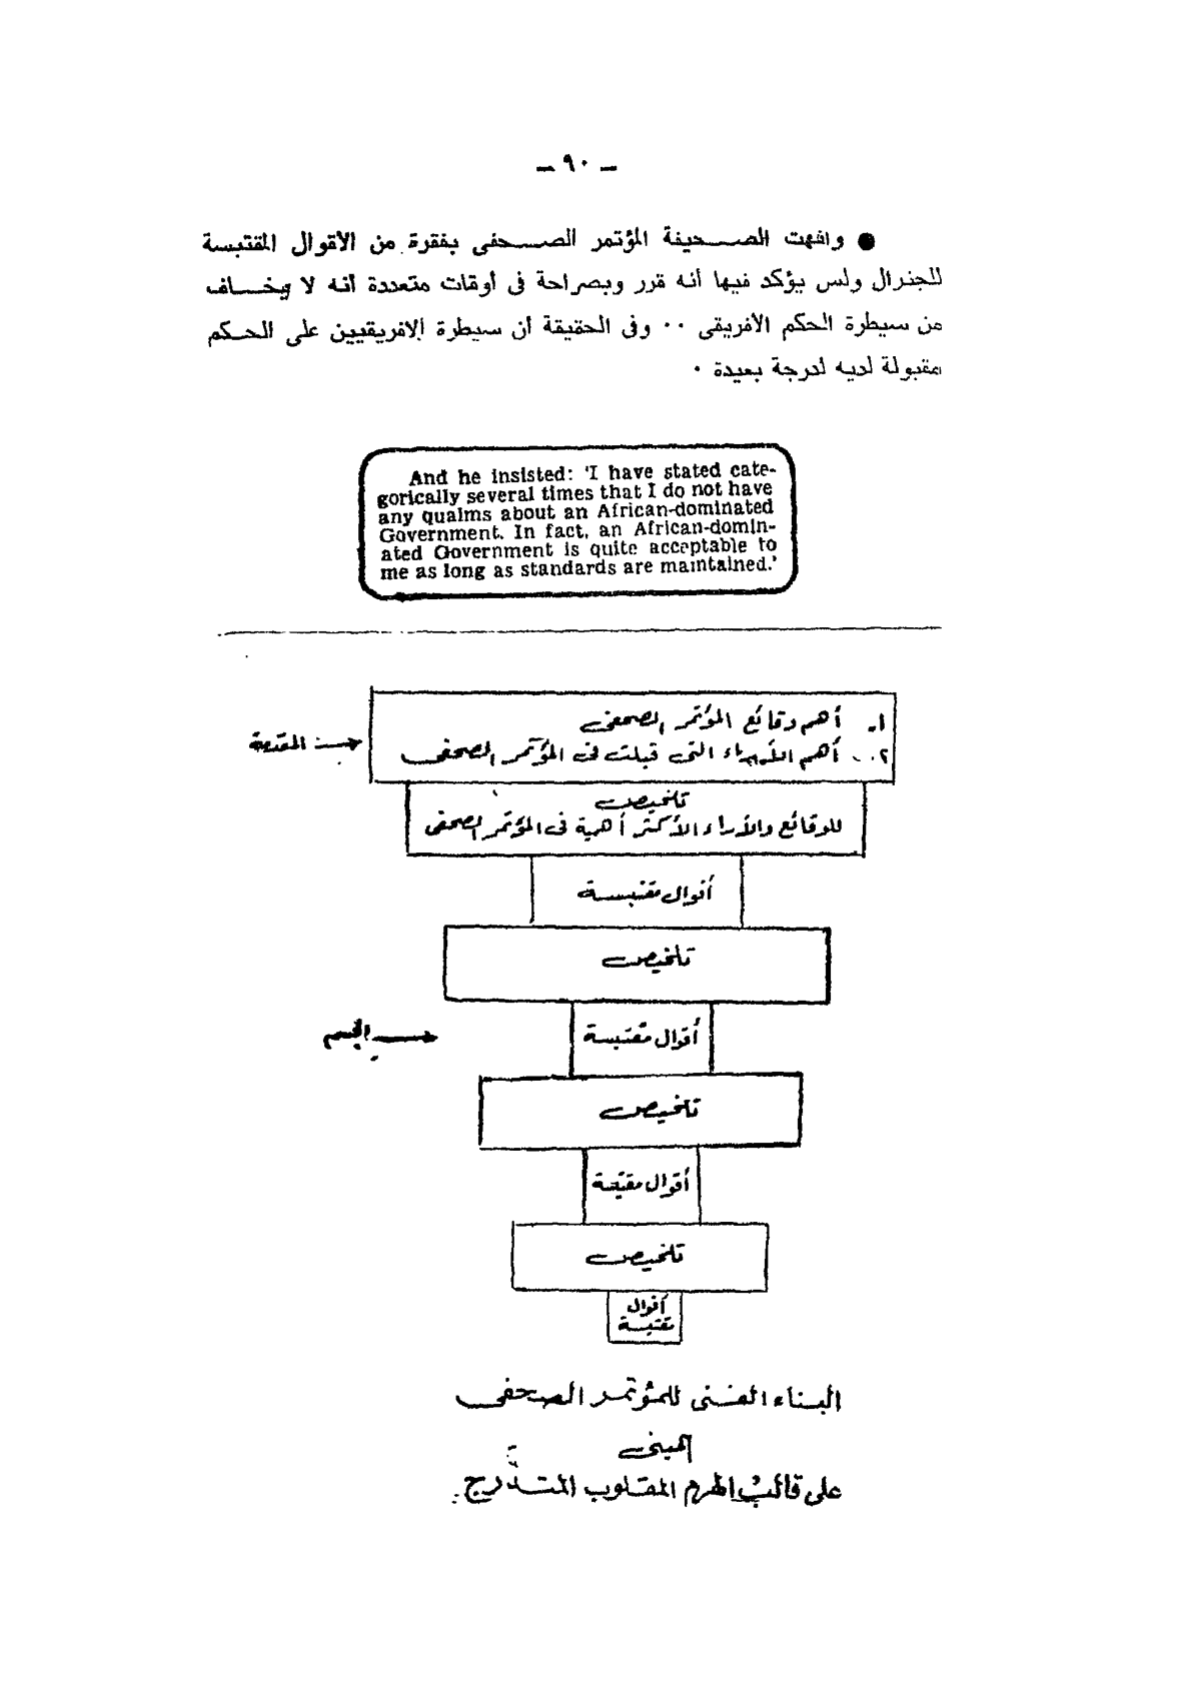 – ٩٠ –
● وانهت الصـــحيفة المؤتمر الصـــحفى بفقرة من الاقوال المقتبسة
للجنرال ولس يؤكد فيها أنه قرر وبصراحة فى أوقات متعددة أنه لا يخـــاف
من سيطرة الحكم الأفريقى ٠٠ وفى الحقيقة أن سيطرة الافريقيين على الحـكم
مقبولة لديه لدرجة بعيدة ٠
And he insisted: 'I have stated cate-
gorically several times that I do not have
any qualms about an African-dominated
Government. In fact, an African-domin-
ated Government is quite acceptable to
me as long as standards are maintained.'
١. أهم وقائع المؤتمر الصحفى
٢.. أهم الآراء التى قيلت فى المؤتمر الصحفى
المقدمة
تلخيص
للوقائع والأراء الأكثر أهمية فى المؤتمر الصحفى
أقوال مقتبسة
تلخيص
أقوال مقتبسة
الجسم
تلخيص
أقوال مقتبسة
تلخيص
أقوال
مقتبسة
البناء الفنى للمؤتمر الصحفى
المبنى
على قالب الهرم المقلوب المتدرج